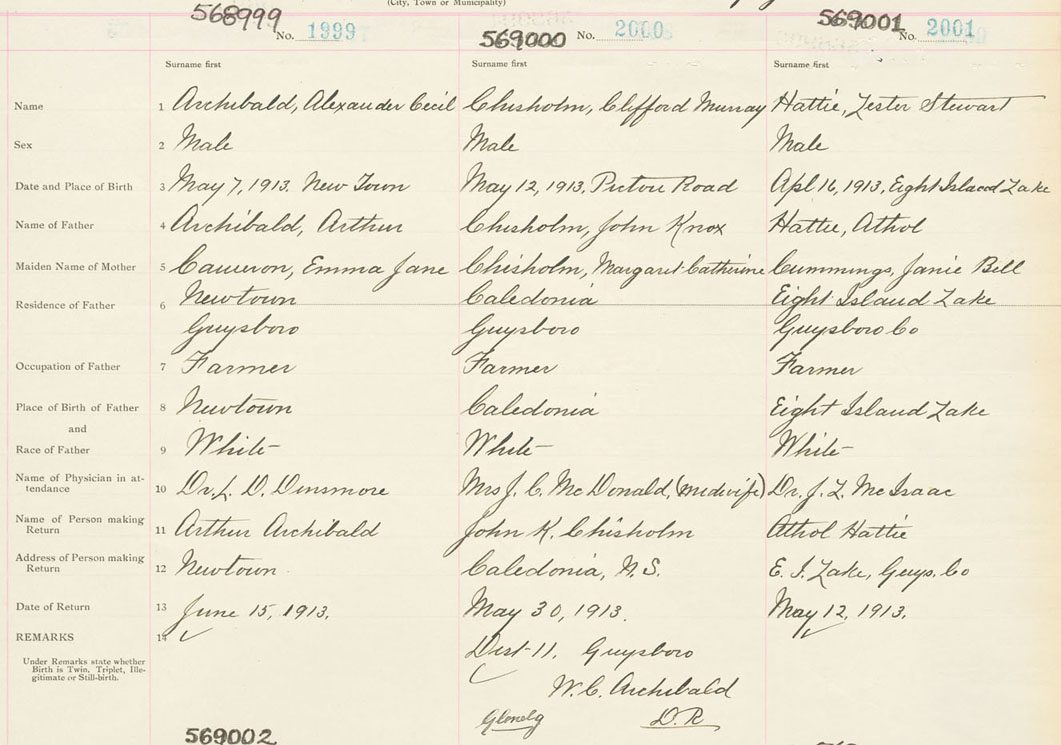 (City, Town or Municipality)
568999 No. 1999 569000 No. 2000 569001 No. 2001
Surname first Surname first Surname first
Name 1 Archibald, Alexander Cecil Chisholm, Clifford Murray Hattie, Lester Stewart
Sex 2 Male Male Male
Date and Place of Birth 3 May 7, 1913. New Town May 12, 1913, Pictou Road Apl 16, 1913, Eight Island Lake
Name of Father 4 Archibald, Arthur Chisholm, John Knox Hattie, Athol
Maiden Name of Mother 5 Cameron, Emma Jane Chisholm, Margaret Catherine Cummings, Janie Bell
Residence of Father 6 Newtown Caledonia Eight Island Lake
Guysboro Guysboro Guysboro Co
Occupation of Father 7 Farmer Farmer Farmer
Place of Birth of Father 8 Newtown Caledonia Eight Island Lake
and
Race of Father 9 White White White
Name of Physician in at-
tendance 10 Dr. L. D. Densmore Mrs J. C. McDonald, (midwife) Dr. J. L. McIsaac
Name of Person making
Return 11 Arthur Archibald John K. Chisholm Athol Hattie
Address of Person making
Return 12 Newtown Caledonia, N.S. E. I. Lake, Guys. Co
Date of Return 13 June 15, 1913. May 30, 1913. May 12, 1913.
REMARKS 14
Under Remarks state whether
Birth is Twin, Triplet, Ille-
gitimate or Still-birth.
Dist 11. Guysboro
W. C. Archibald
Glenelg D. R
569002